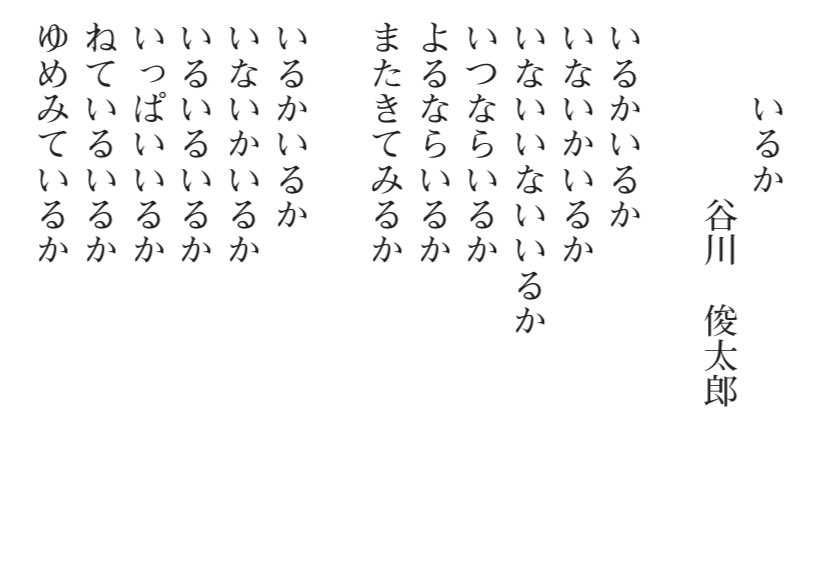 いるか
谷川　俊太郎
いるかいるか
いないかいるか
いないいないいるか
いつならいるか
よるならいるか
またきてみるか
いるかいるか
いないかいるか
いるいるいるか
いっぱいいるか
ねているいるか
ゆめみているか